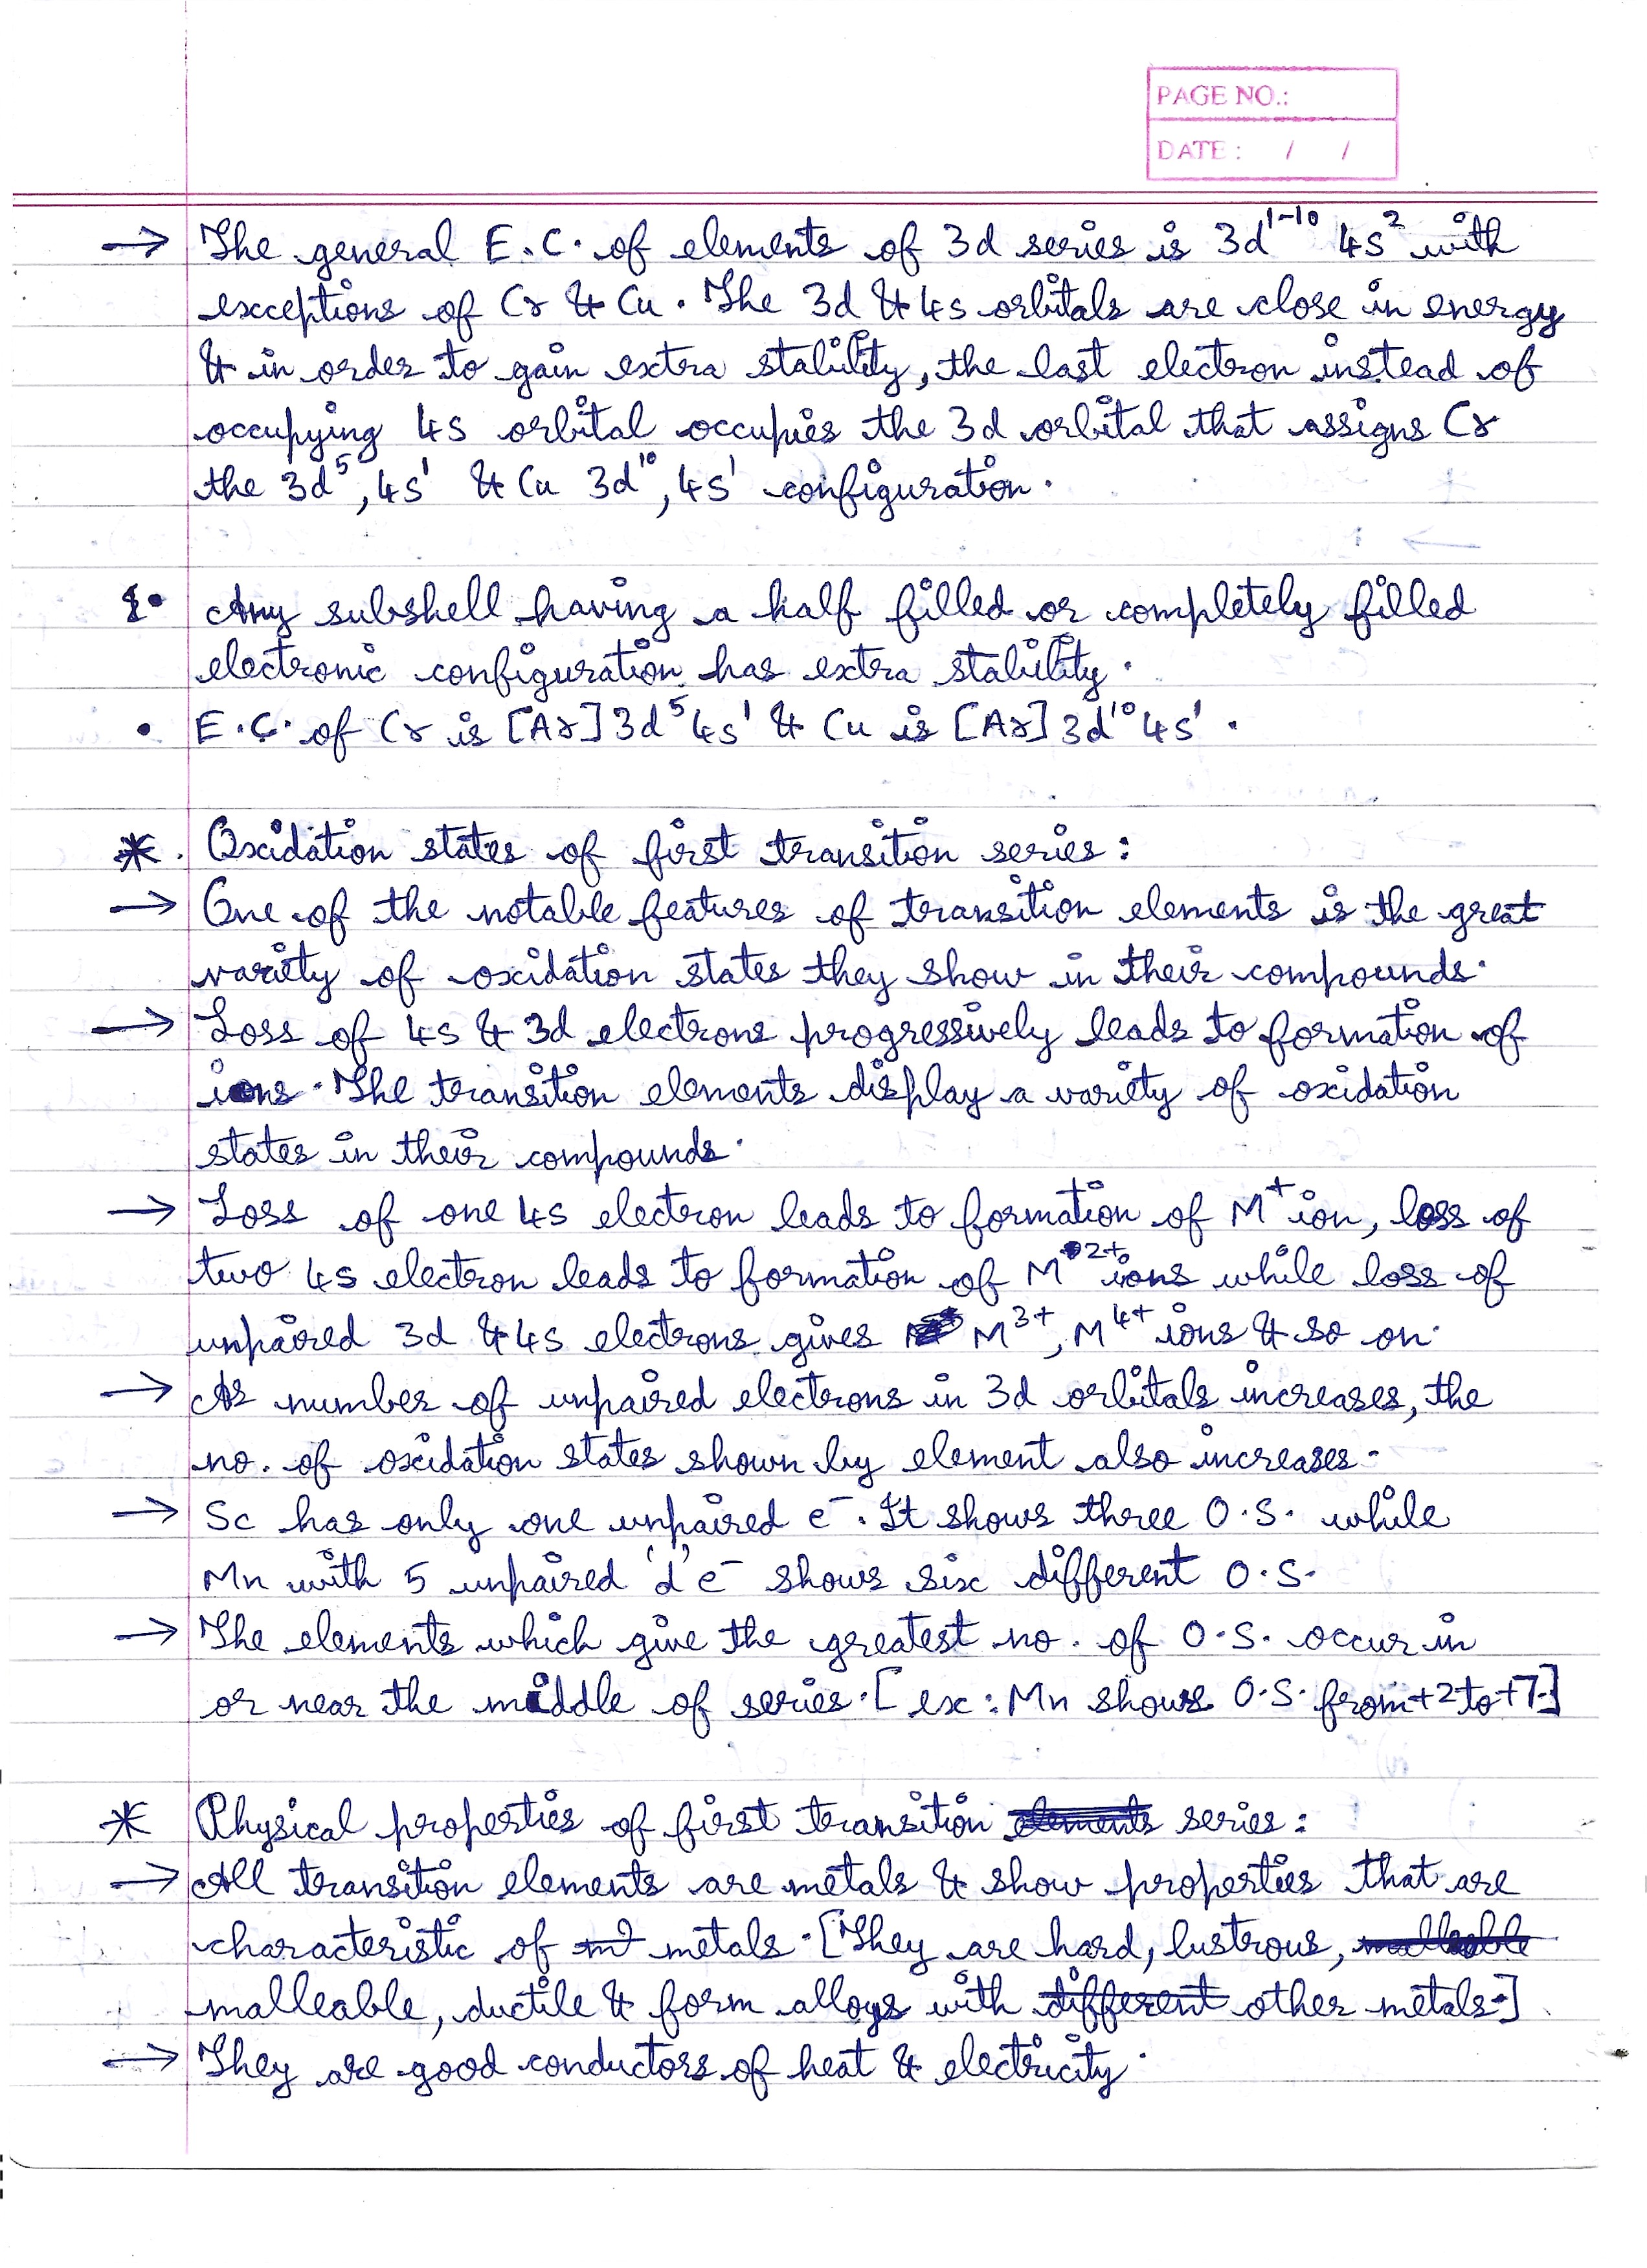 PAGE NO.:
DATE : / /
→ The general E.C. of elements of 3d series is 3d¹⁻¹⁰ 4s² with
exceptions of Cr & Cu. The 3d & 4s orbitals are close in energy
& in order to gain extra stability, the last electron instead of
occupying 4s orbital occupies the 3d orbital that assigns Cr
the 3d⁵, 4s¹ & Cu 3d¹⁰, 4s¹ configuration.
• Any subshell having a half filled or completely filled
electronic configuration has extra stability.
• E.C. of Cr is [Ar] 3d⁵ 4s¹ & Cu is [Ar] 3d¹⁰ 4s¹.
* Oxidation states of first transition series :
→ One of the notable features of transition elements is the great
variety of oxidation states they show in their compounds.
→ Loss of 4s & 3d electrons progressively leads to formation of
ions. The transition elements display a variety of oxidation
states in their compounds.
→ Loss of one 4s electron leads to formation of M⁺ ion, loss of
two 4s electron leads to formation of M²⁺ ions while loss of
unpaired 3d & 4s electrons gives M³⁺, M⁴⁺ ions & so on.
→ As number of unpaired electrons in 3d orbitals increases, the
no. of oxidation states shown by element also increases.
→ Sc has only one unpaired e⁻. It shows three O.S. while
Mn with 5 unpaired 'd' e⁻ shows six different O.S.
→ The elements which give the greatest no. of O.S. occur in
or near the middle of series. [ex : Mn shows O.S. from +2 to +7.]
* Physical properties of first transition elements series :
→ All transition elements are metals & show properties that are
characteristic of metals. [They are hard, lustrous, malleable
malleable, ductile & form alloys with different other metals.]
→ They are good conductors of heat & electricity.